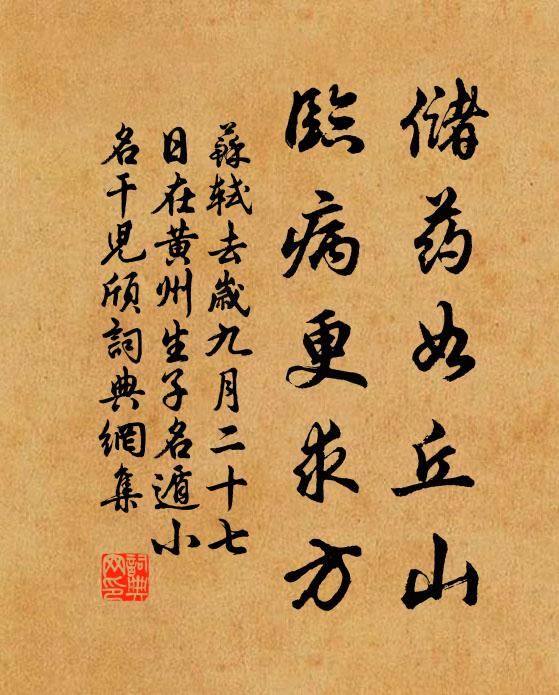 储药如丘山
臨病更求方
蘇軾去歲九月二十七
日在黄州生子名遁小
名干兒頎詞典網集
詞典网印